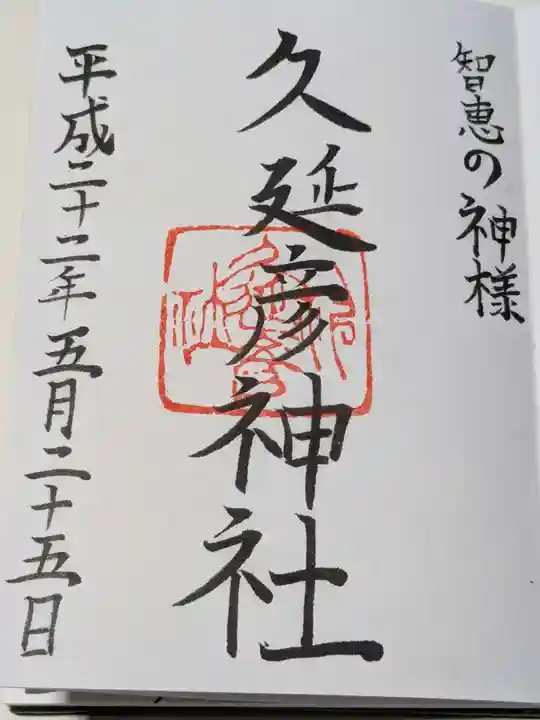 智恵の神様
久延彦神社
平成二十二年五月二十五日